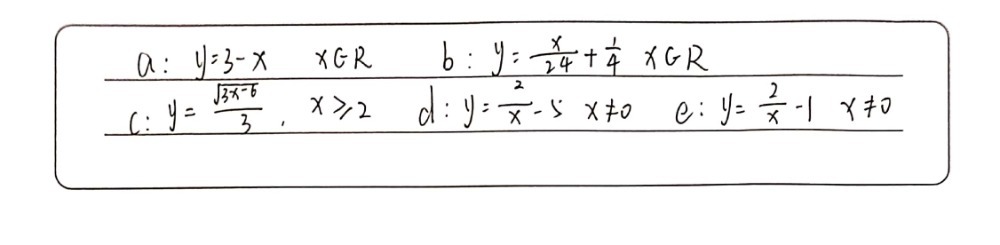 a: y=3-x x∈R b: y=x/24+1/4 x∈R
c: y=√(3x-6)/3, x≥2 d: y=2/x-5 x≠0 e: y=2/x-1 x≠0